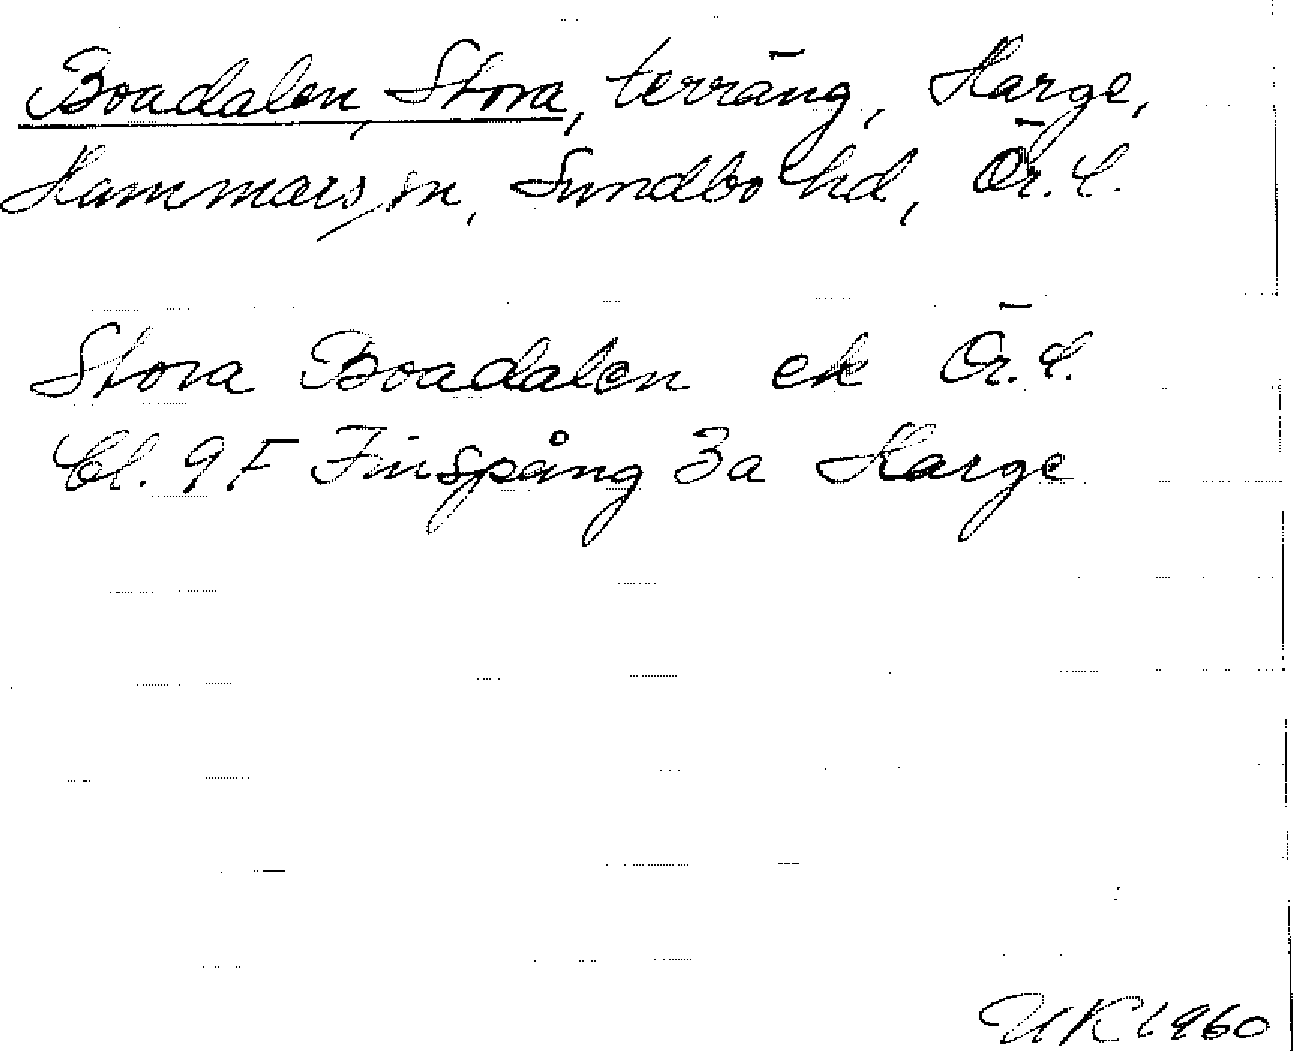 Boadalen, Stora, terräng, Harge,
Hammars sn, Sundbo hd, Ör. l.
Stora Boadalen ek Ör. l.
Bl. 9F Finspång 3a Harge
UK 1960